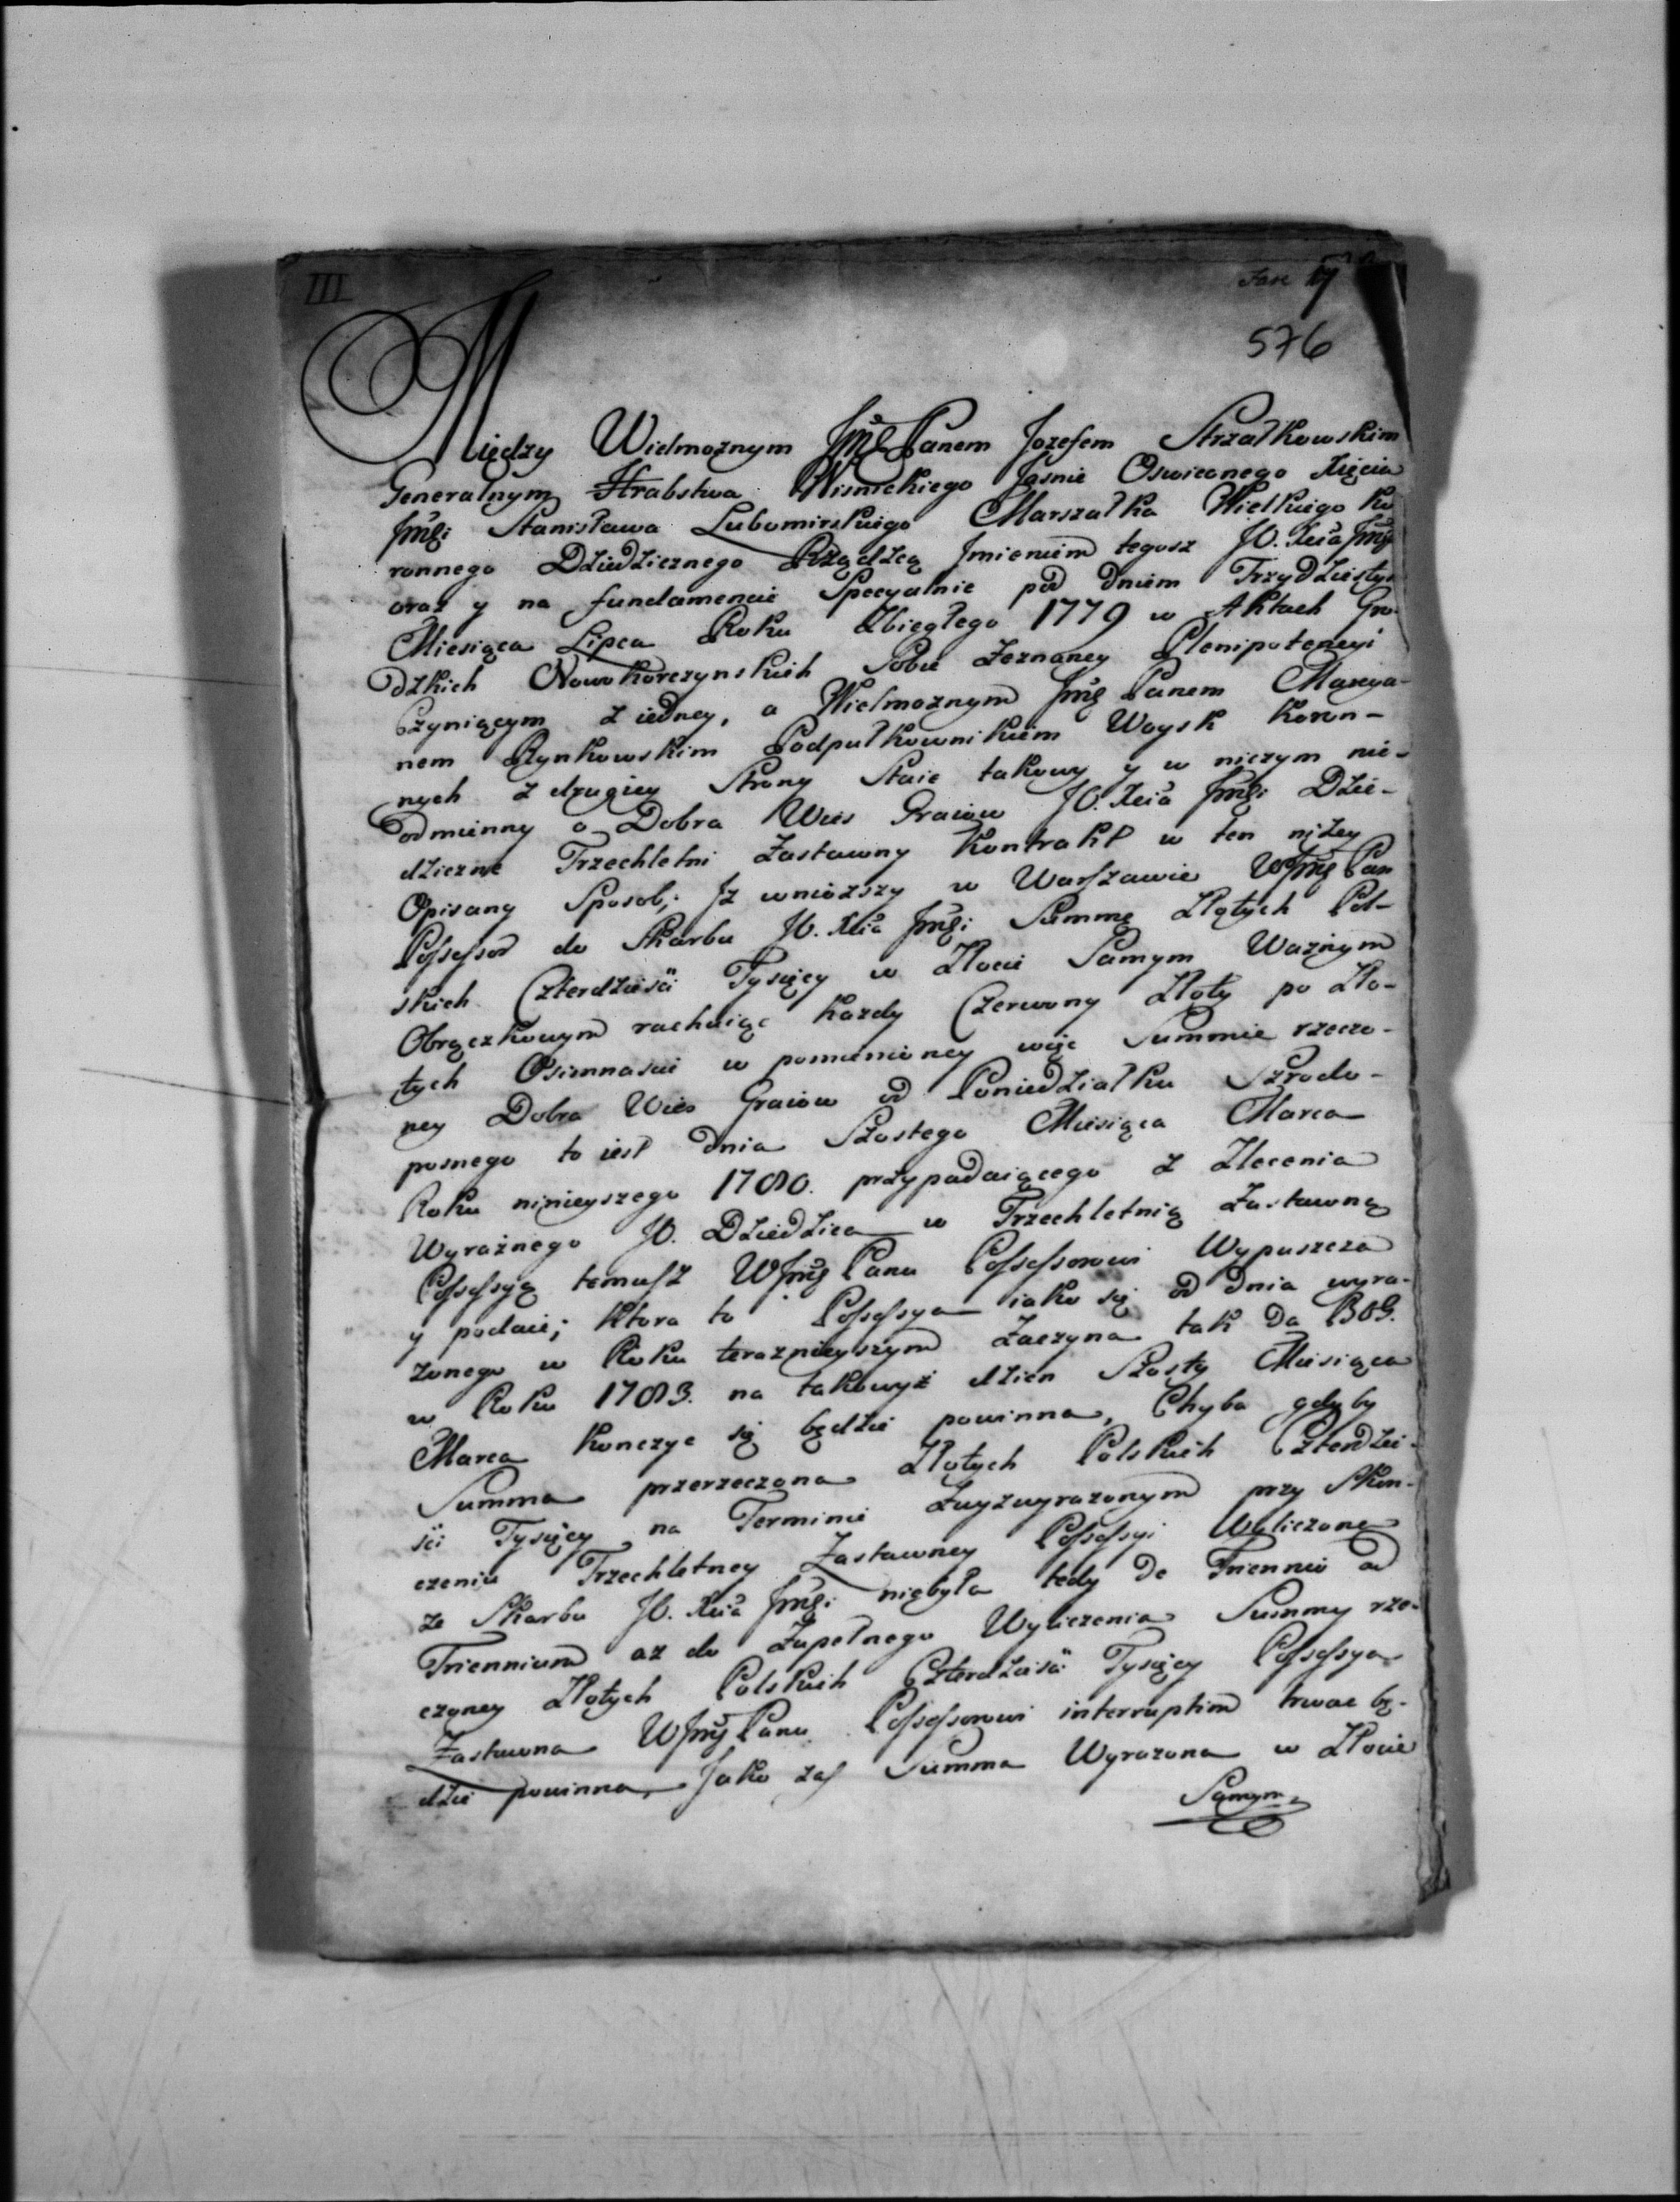 III
Fasc
576
Między Wielmoznym Jmć Panem Jozefem Strzałkowskim
Generalnym Hrabstwa Wisnickiego Jasnie Oswieconego Xięcia
Jmći Stanisława Lubomirskiego Marszałka Wielkiego Ko
ronnego Dziedzicznego Rządzcą Jmieniem tegosz JO. Xcia Jmći
oraz y na fundamencie Specyalnie pod dniem Trzydziestym
Miesiąca Lipca Roku Zbiegłego 1779 w Aktach Gro-
dzkich Nowokorczynskich Sobie Zeznaney Plenipotencyi
Czyniącym z iedney, a Wielmoznym Jmć Panem Marcya-
nem Rynkowskim Podpułkownikiem Woysk Koron-
nych z drugiey Strony Staie takowy y w niczym nie-
odmienny o Dobra Wies Graiow JO. Xcia Jmći Dzie-
dziczne Trzechletni Zastawny Kontrakt w ten niżey
Opisany Sposob; Jz wniozszy w Warszawie WJmć Pan
Possessor do Skarbu JO. Xcia Jmći Summę Złotych Pol-
skich Czterdziesci Tysięcy w Złocie Samym Ważnym
Obrączkowym rachuiąc kazdy Czerwony Złoty po Zło-
tych Osimnascie w pomienioney więc Summie rzeczo-
ney Dobra Wies Graiow od Poniedziałku Szrodo-
posnego to iest dnia Szostego Miesiąca Marca
Roku ninieyszego 1780. przypadaiącego z Zlecenia
Wyraźnego JO. Dziedzica w Trzechletnią Zastawną
Possessyą temusz WJmć Panu Possessorowi Wypuszcza
y podaie; ktora to Possessya iako się od dnia wyra-
zonego w Roku teraznieyszym Zaczyna tak Da BOG.
w Roku 1783. na takowyż dzien Szosty Miesiąca
Marca konczyc się będzie powinna, Chyba gdyby
Summa przerzeczona Złotych Polskich Czterdzie-
sci Tysięcy na Terminie Zwyzwyrazonym przy Skon-
czeniu Trzechletney Zastawney Possessyi Wyliczoną
ze Skarbu JO. Xcia Jmći niebyła tedy de Triennio ad
Triennium az do Zupełnego Wyliczenia Summy rze-
czoney Złotych Polskich Czterdziesci Tysięcy Possessya
Zastawna WJmć Panu Possessorowi interruptim trwac bę-
dzie powinna, Jako zas Summa Wyrazona w Złocie
Samym